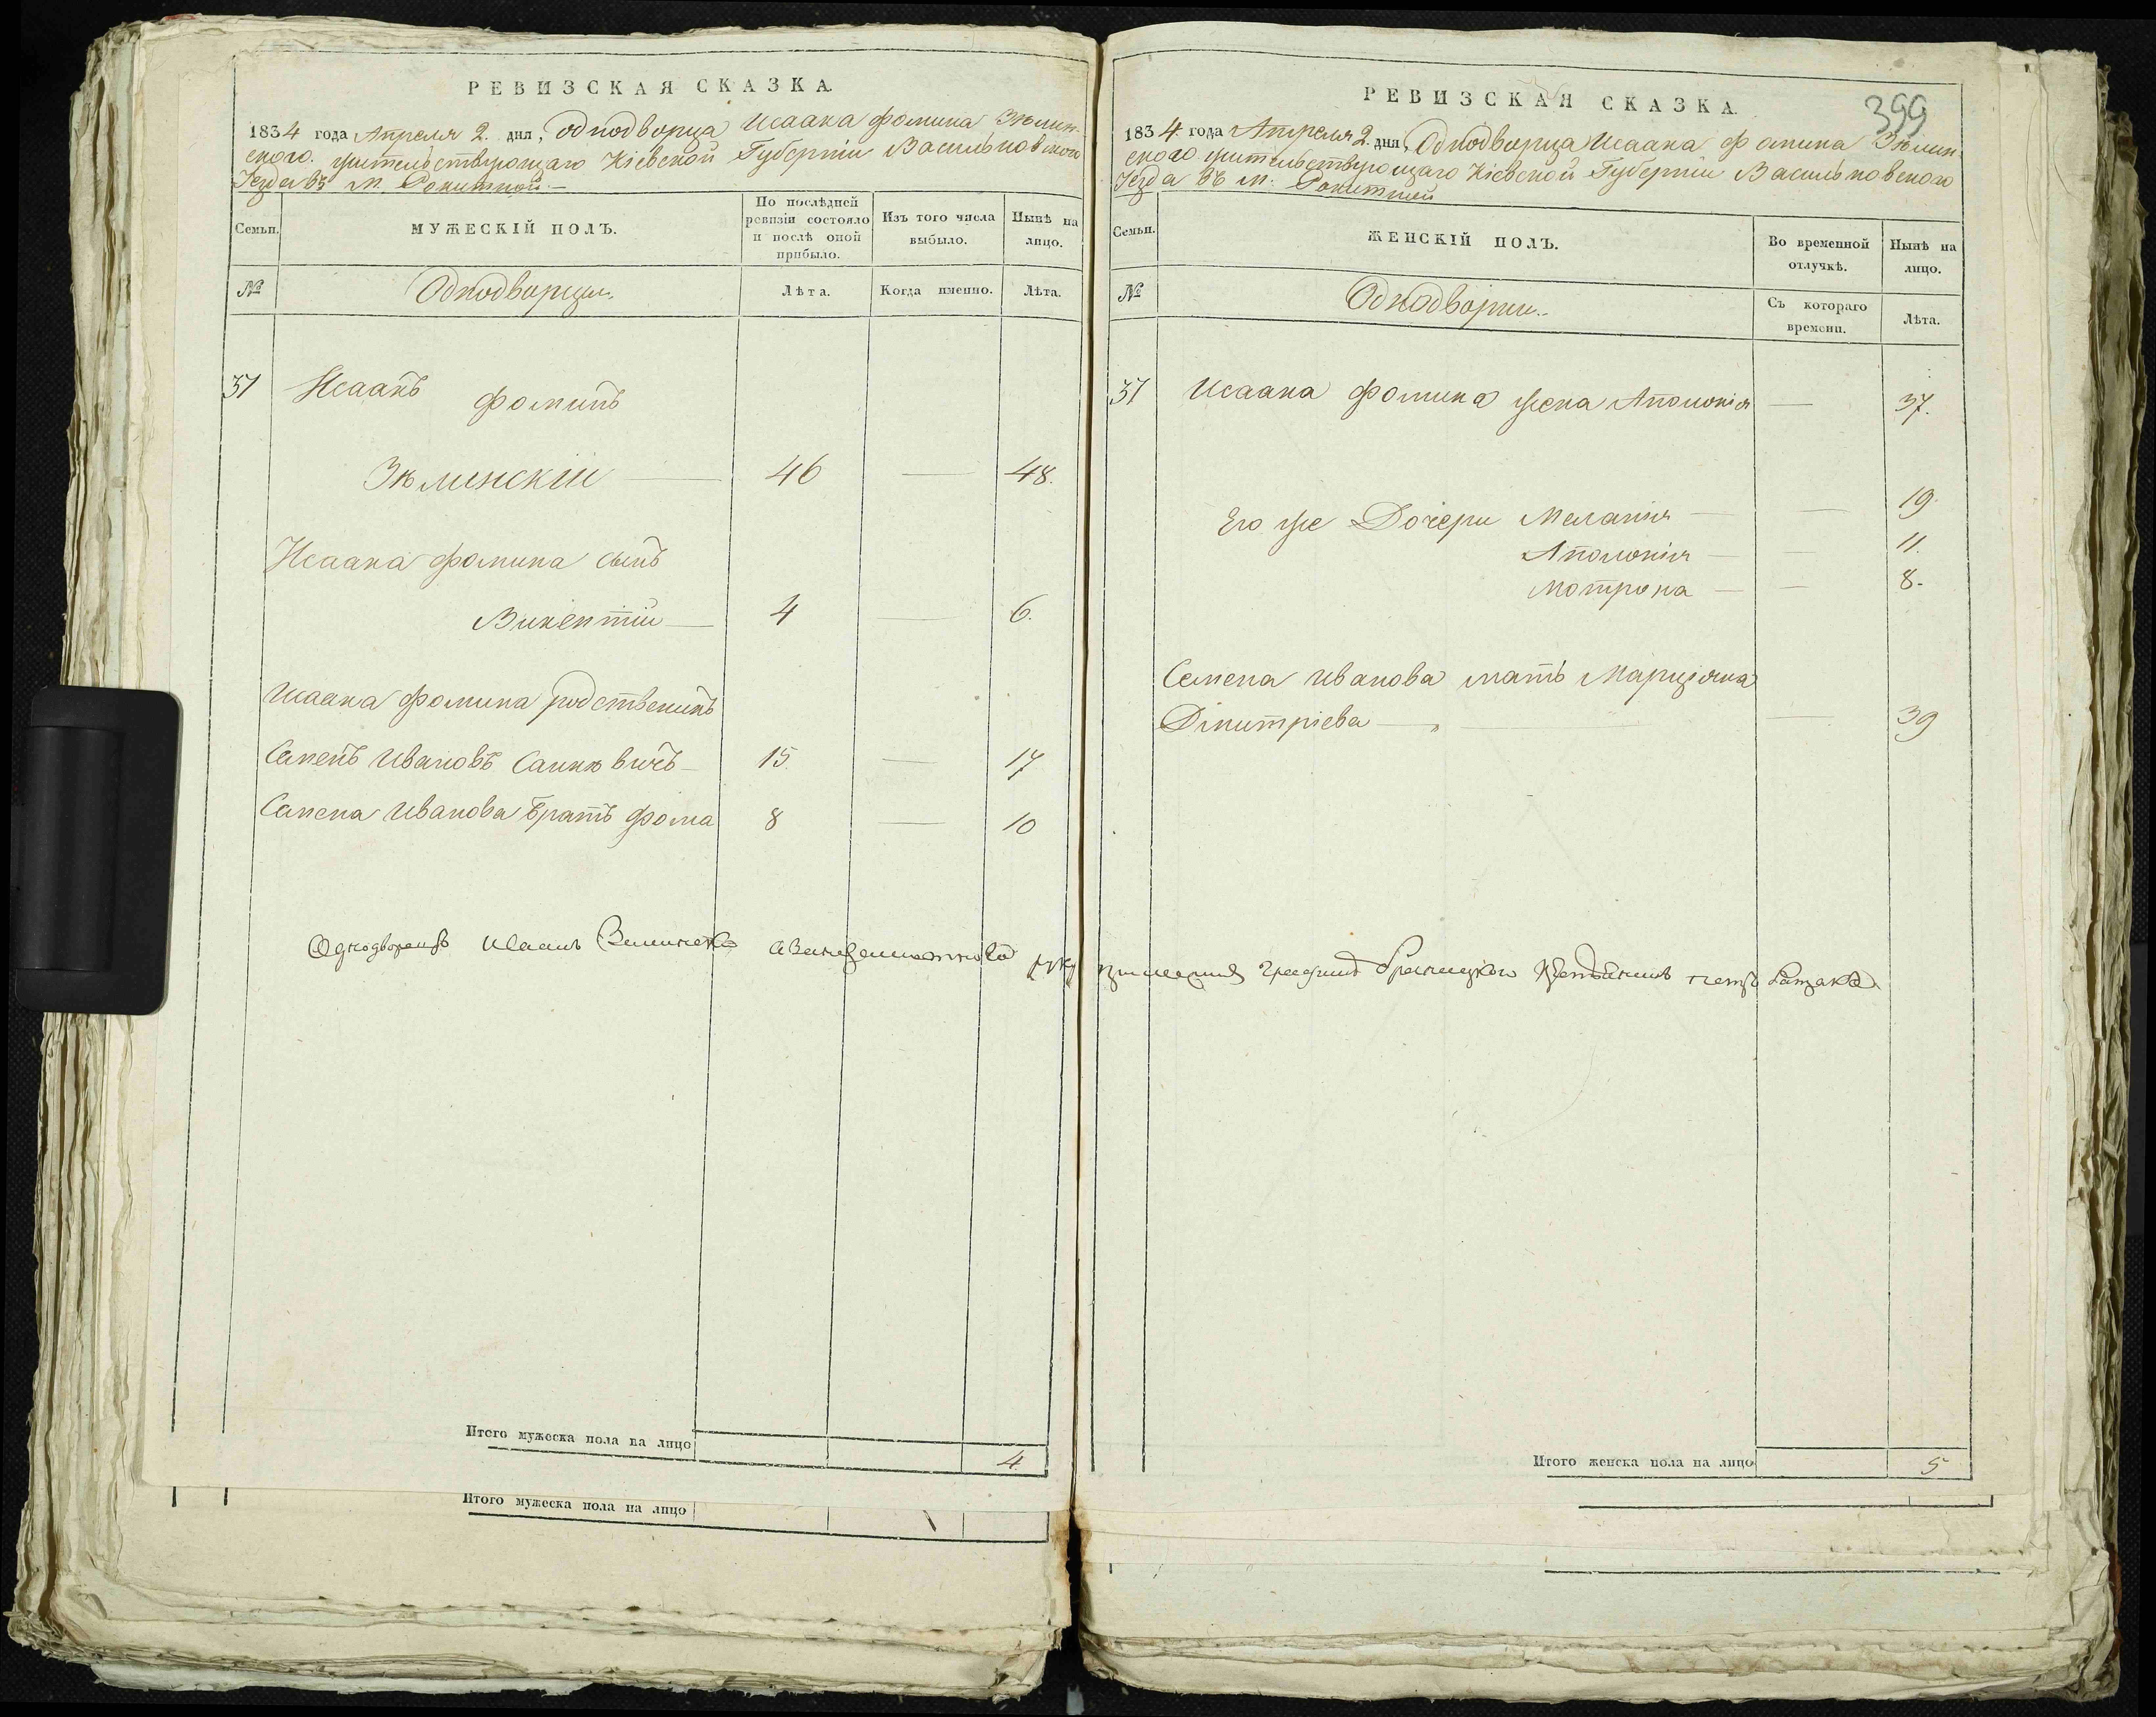 РЕВИЗСКАЯ СКАЗКА.
1834 года Апреля 2. дня, Однодворца Исаака Фомина Зѣлин-
ского. жительствующаго Кіевской Губерніи Васильковского
Уезда въ М. Рокитной.—
Семьи.
МУЖЕСКІЙ ПОЛЪ.
По послѣдней ревизіи состояло и послѣ оной прибыло.
Изъ того числа выбыло.
Нынѣ на лицо.
№
Однодворцы.
Лѣта.
Когда именно.
Лѣта.
37 Исаакъ Фоминъ
Зѣлинскій — 46 — 48.
Исаака Фомина сынъ
Викентій — 4 — 6.
Исаака Фомина родственикъ
Семенъ Ивановъ 15. — 17
Семена Иванова братъ Фома 8 — 10
Итого мужеска пола на лицо 4
Итого мужеска пола на лицо
399
РЕВИЗСКАЯ СКАЗКА.
1834. года Апреля 2. дня, Однодворца Исаака Фомина Зѣлин-
ского жительствующаго Кіевской Губерніи Васильковского
Уезда въ М. Рокитней
Семьи.
ЖЕНСКІЙ ПОЛЪ.
Во временной отлучкѣ.
Нынѣ на лицо.
№
Однодворки.
Съ котораго времени.
Лѣта.
37 Исаака Фомина жена Аполонія — 37.
Его же Дочери Меланія — — 19.
Аполонія — — 11.
Мотрона — — 8.
Семена Иванова мать Марціяна
Димитріева — — 39
Однодворецъ
Итого женска пола на лицо 5